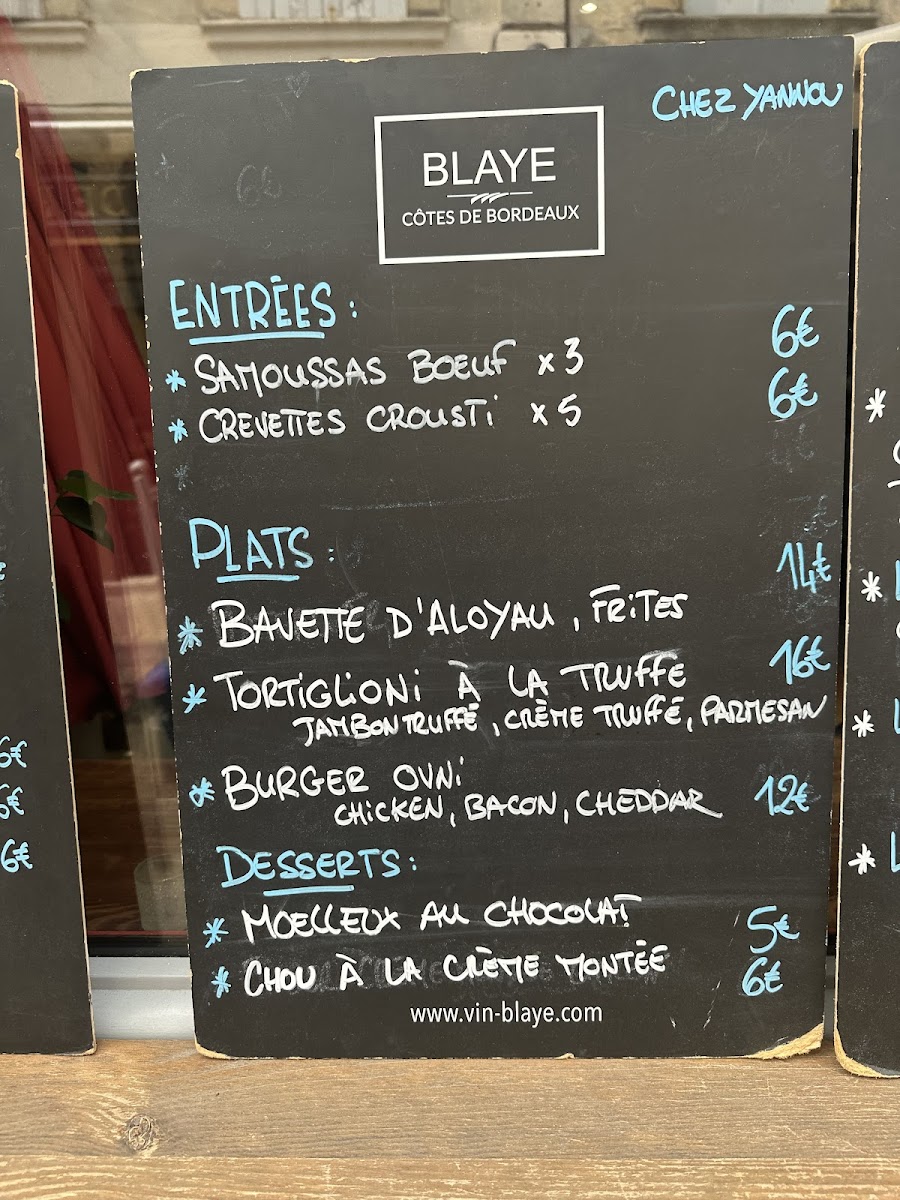 CHEZ YANNOU
BLAYE
CÔTES DE BORDEAUX
6€
ENTRÉES :
* SAMOUSSAS BOEUF x3 6€
* CREVETTES CROUSTI x5 6€
PLATS :
* BAVETTE D'ALOYAU, FRITES 14€
* TORTIGLIONI À LA TRUFFE 16€
JAMBON TRUFFÉ, CRÈME TRUFFÉ, PARMESAN
* BURGER OVNI
CHICKEN, BACON, CHEDDAR 12€
DESSERTS :
* MOELLEUX AU CHOCOLAT 5€
* CHOU À LA CRÈME MONTÉE 6€
www.vin-blaye.com
6€
6€
6€